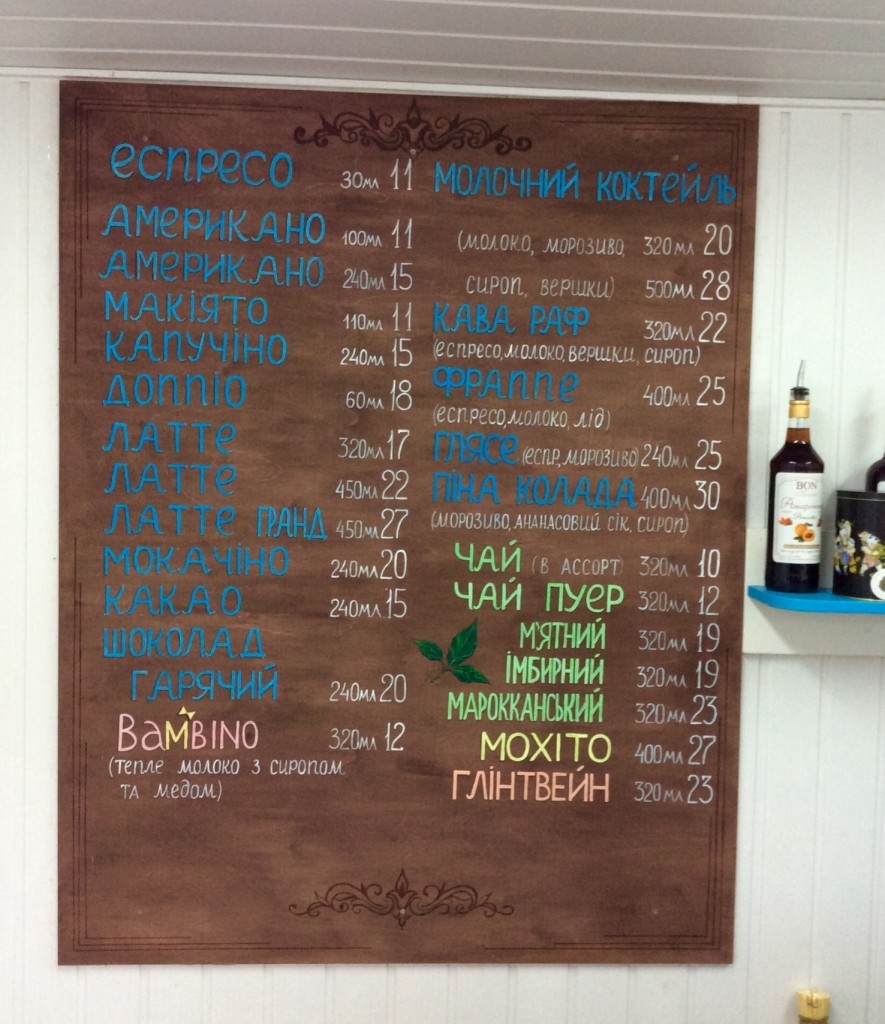 еспресо 30мл 11
Американо 100мл 11
Американо 240мл 15
Макіято 110мл 11
Капучіно 240мл 15
Доппіо 60мл 18
Латте 320мл 17
Латте 450мл 22
Латте Гранд 450мл 27
Мокачіно 240мл 20
Какао 240мл 15
Шоколад
гарячий 240мл 20
BaMBINO 320мл 12
(тепле молоко з сиропом
та медом)
Молочний коктейль
(молоко, морозиво, 320мл 20
сироп, вершки) 500мл 28
Кава Раф 320мл 22
(еспресо, молоко, вершки, сироп)
Фраппе 400мл 25
(еспресо, молоко, лід)
Глясе (еспр, морозиво) 240мл 25
Піна Колада 400мл 30
(морозиво, ананасовий сік, сироп)
Чай (в ассорт) 320мл 10
Чай Пуер 320мл 12
М'ятний 320мл 19
Імбирний 320мл 19
Марокканський 320мл 23
Мохіто 400мл 27
Глінтвейн 320мл 23
BON